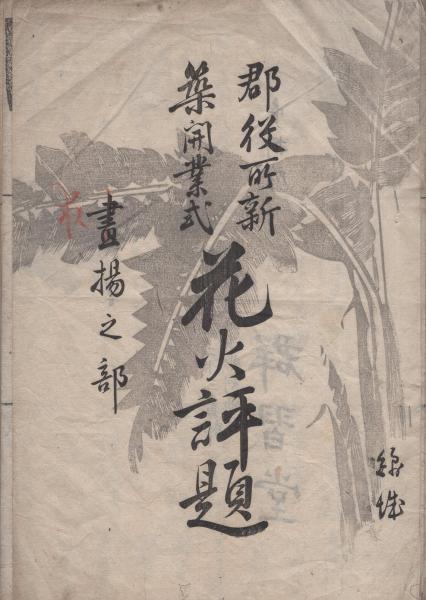 郡役所新
築開業式
花火評題
晝揚之部
群習堂